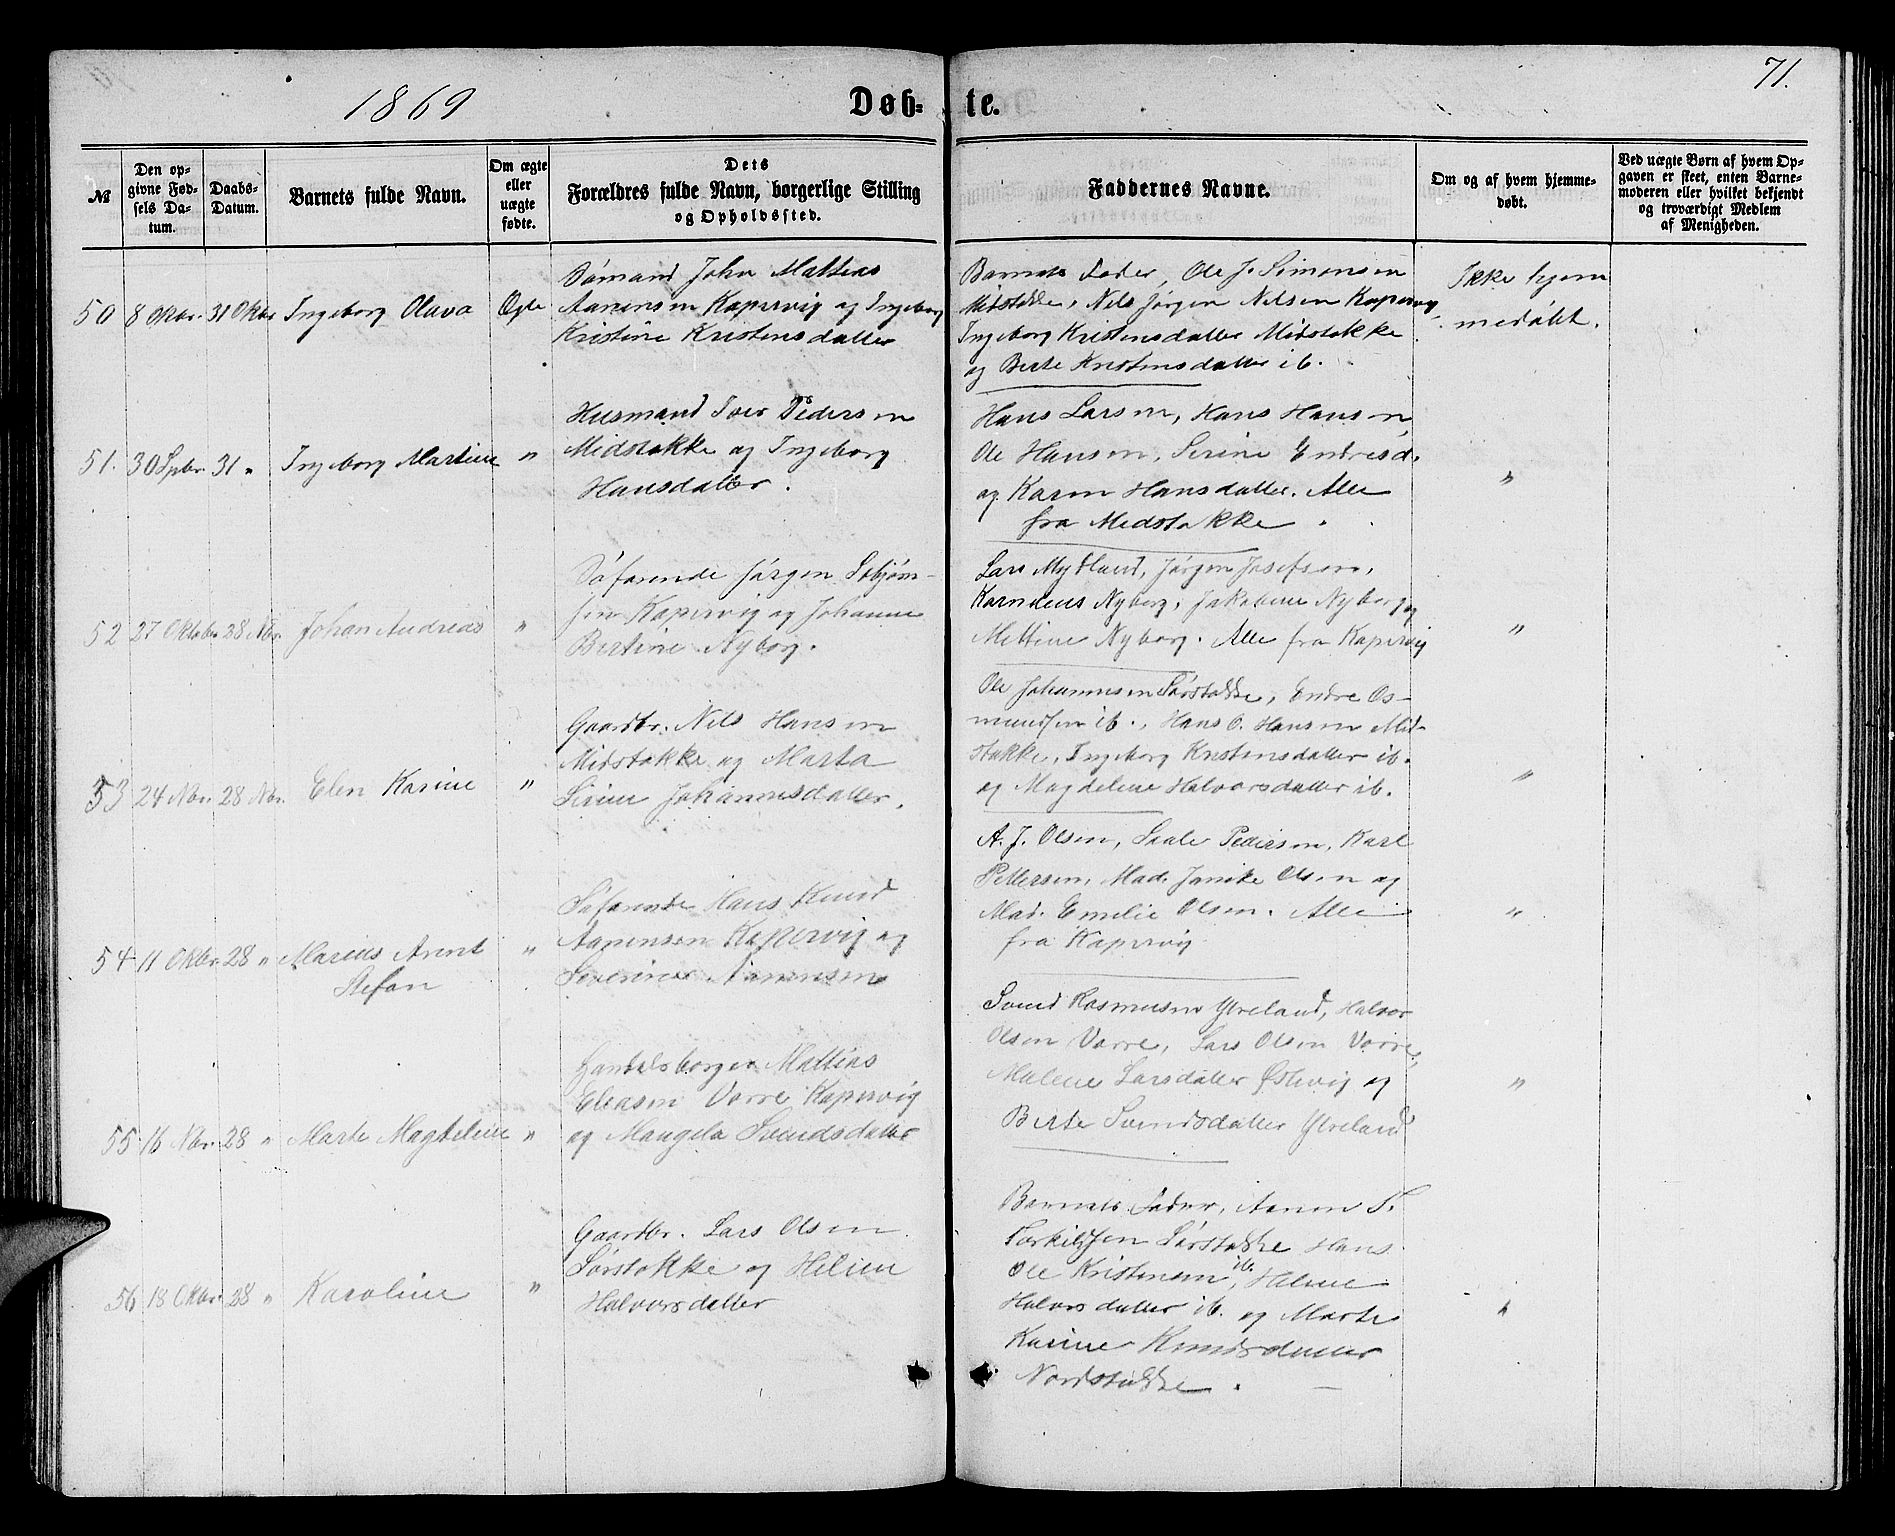 1869
Døb-
te.
71.
№
Den op-
givne Fød-
sels Da-
tum.
Daabs-
Datum.
Barnets fulde Navn.
Om ægte
eller
uægte
fødte.
Dets
Forældres fulde Navn, borgerlige Stilling
og Opholdssted.
Faddernes Navne.
Om og af hvem hjemme-
døbt.
Ved uægte Børn af hvem Op-
gaven er skeet, enten Barne-
moderen eller hvilket bekjendt
og troværdigt Medlem
af Menigheden.
50 8 Oktbr. 31 Oktbr. Ingeborg Olava Ægte
Sømand John Mattias
Aanensen Kopervig og Ingeborg
Kristine Kristensdatter
Barnets Fader, Ole J. Simonsen
Midstokke, Nils Jørgen Nilsen Kopervig,
Ingeborg Kristensdatter Midstokke
og Berte Kristensdatter ib.
Ikke hjem
medøbt.
51. 30 Spbr. 31 " Ingeborg Martine "
Husmand Iver Pedersen
Midstokke og Ingeborg
Hansdatter.
Hans Larsen, Hans Hansen,
Ole Hansen, Serine Endresd.
og Karen Hansdatter. Alle
fra Midstokke.
"
52 27 Oktober 28 Nbr. Johan Andreas "
Søfarende Jørgen
Kopervig og Johanne
Bertine Nyborg.
Lars Mydland, Jørgen Josefsen,
Nyborg, Jakobine Nyborg og
Mettine Nyborg. Alle fra Kopervig
"
53 24 Nbr. 28 Nbr. Elen Karine "
Gaardbr. Nils Hansen
Midstokke og Marta
Serine Johannesdatter.
Ole Johannesen Sørstokke, Endre Os-
mundsen ib., Hans O. Hansen Mid-
stokke, Ingeborg Kristensdatter ib.
og Magdelene Halvorsdatter ib.
"
54 11 Oktbr. 28 " Marius Arent
Stefan
"
Søfarende Hans Knud
Aanensen Kopervig og
Severine Aanensen
A. J. Olsen, Saale Pedersen, Karl
Pettersen, Mad. Janike Olsen og
Mad. Emelie Olsen. Alle
fra Kopervig
"
55 16 Nbr. 28 " Marte Magdeline "
Handelsborger Mattias
Eleasen Vorre Kopervig
og Mangela Svendsdatter
Svend Rasmusen Ytreland, Halvor
Olsen Vorre, Lars Olsen Vorre,
Malene Larsdatter Østevig og
Berte Svendsdatter Ytreland
"
56 18 Oktbr. 28 " Karoline "
Gaardbr. Lars Olsen
Sørstokke og Heline
Halvorsdatter
Barnets Fader, Aanen T.
Torkildsen Sørstokke Hans
Ole Kristensen ib., Helene
Halvorsdatter ib. og Marte
Karine Knudsdatter
Nordstokke.
"